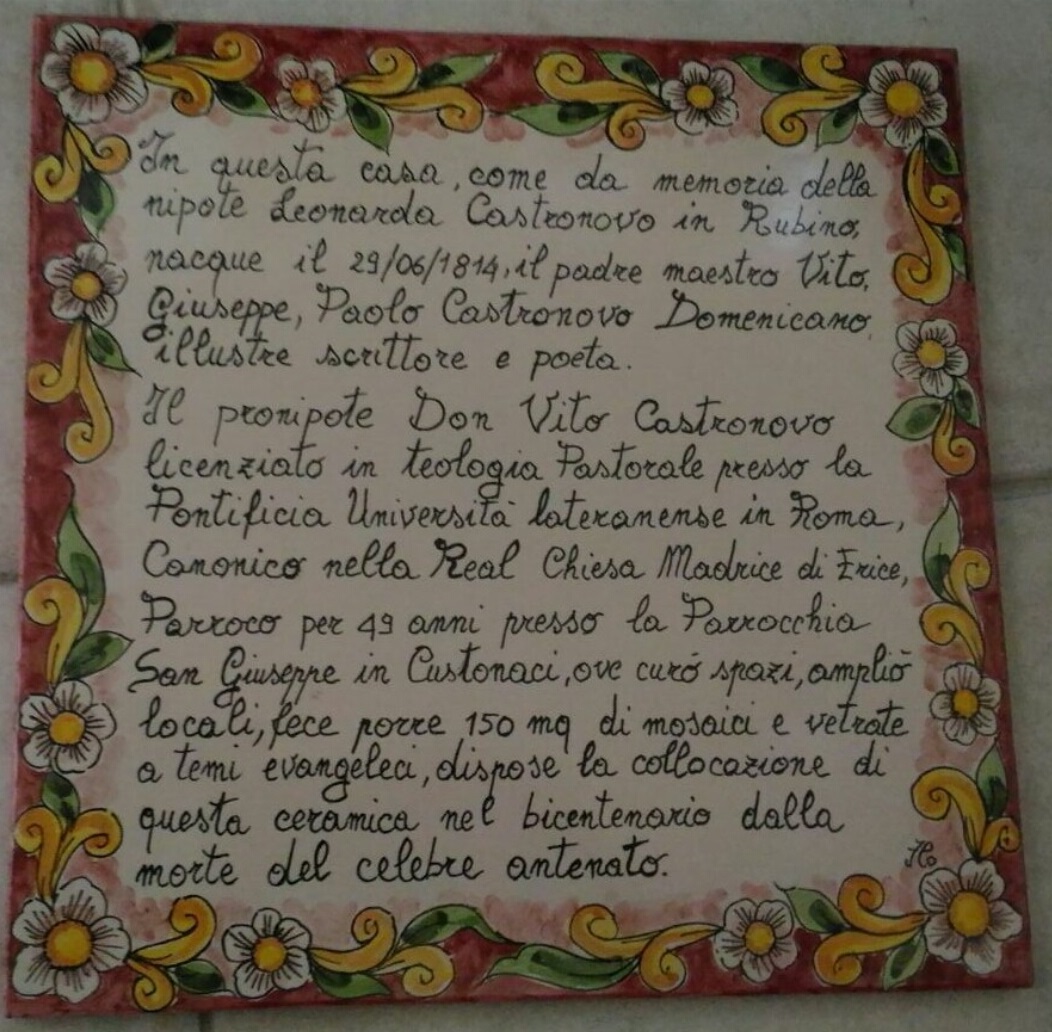 In questa casa, come da memoria della
nipote Leonarda Castronovo in Rubino,
nacque il 29/06/1814, il padre maestro Vito,
Giuseppe, Paolo Castronovo Domenicano,
illustre scrittore e poeta.
Il pronipote Don Vito Castronovo
licenziato in teologia Pastorale presso la
Pontificia Università lateranense in Roma,
Canonico nella Real Chiesa Madrice di Erice,
Parroco per 49 anni presso la Parrocchia
San Giuseppe in Custonaci, ove curó spazi, ampliò
locali, fece porre 150 mq di mosaici e vetrate
a temi evangeleci, dispose la collocazione di
questa ceramica nel bicentenario dalla
morte del celebre antenato.